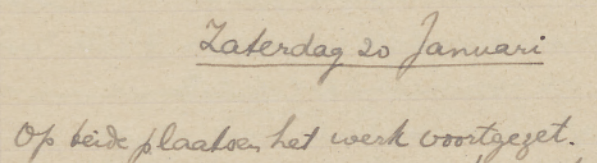 Zaterdag 20 Januari
Op beide plaatsen het werk voortgezet.